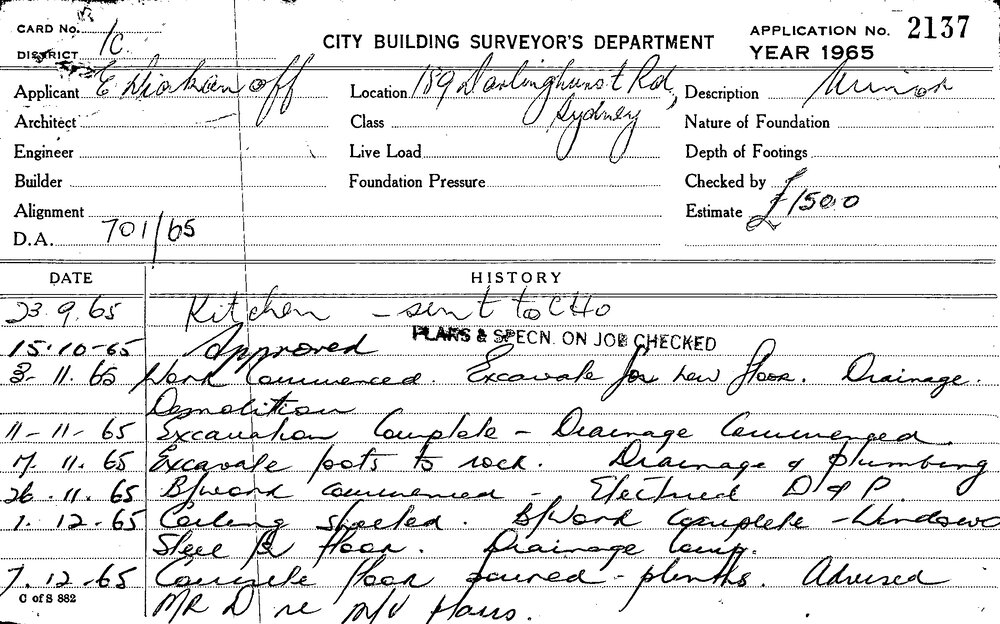 CARD No. 1C
DISTRICT
CITY BUILDING SURVEYOR'S DEPARTMENT
APPLICATION No. 2137
YEAR 1965
Applicant E Diakanoff Location 189 Darlinghurst Rd, Sydney Description Minor
Architect Class Nature of Foundation
Engineer Live Load Depth of Footings
Builder Foundation Pressure Checked by
Alignment Estimate £1500
D.A. 701/65
DATE HISTORY
23.9.65 Kitchen - sent to CHO
15.10-65 Approved PLANS & SPECN. ON JOB CHECKED
3.11.65 Work Commenced. Excavate for new floor. Drainage.
Demolition
11-11-65 Excavation Complete - Drainage Commenced.
17.11.65 Excavate foots to rock. Drainage & plumbing
26.11.65 B/work commenced - Electrical D & P.
1.12-65 Ceiling sheeted. B/Work Complete - Windows
Steel floor. Drainage Comp.
7.12-65 Concrete floor poured - plinths. Advised
MR D re M/V
C of S 882